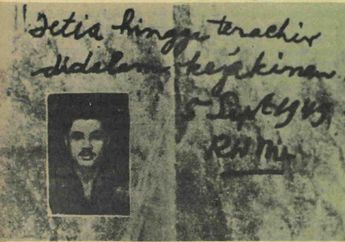 Setia hingga terachir
didalam kejakinan
5 Sept 1949